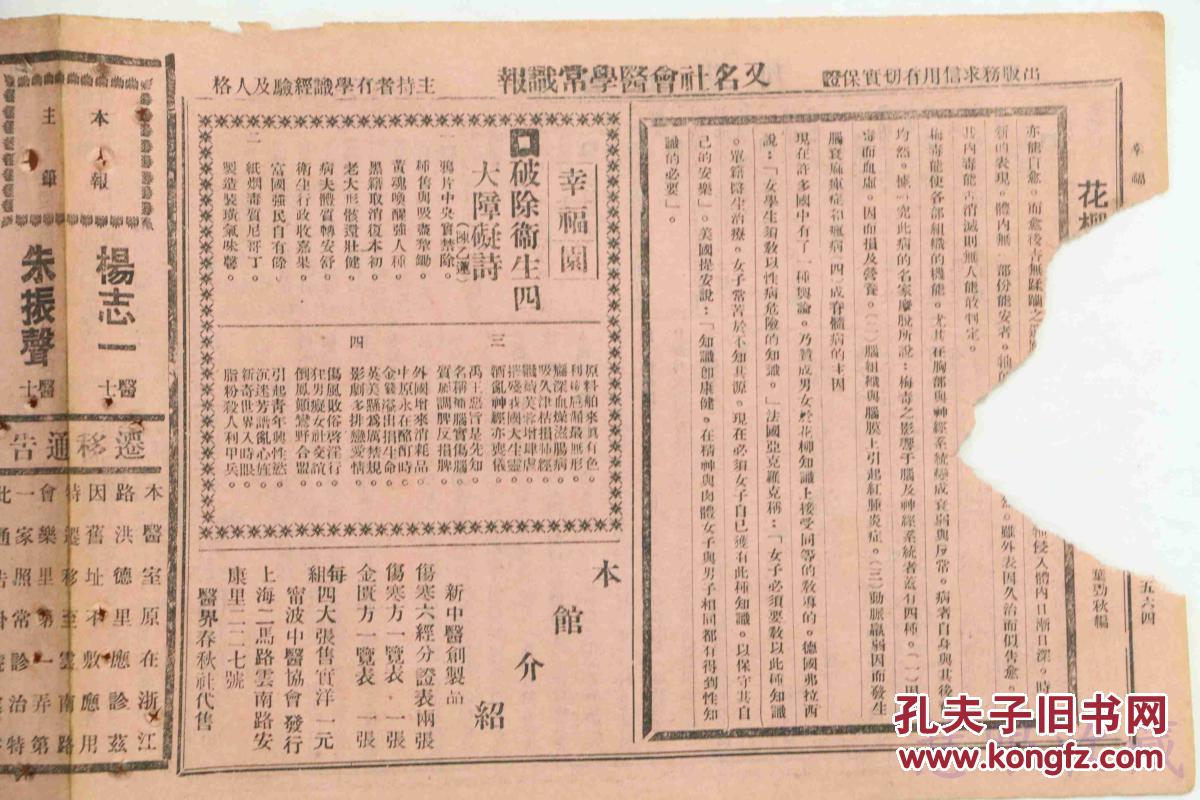 出版務求信用有切實保證
又名社會醫學常識報
主持者有學識經驗及人格
幸福
五六四
花柳
葉勁秋編
新的表現。體內無一部份能安者。
共內毒能否消滅則無人能敢判定。
侵入體內日漸日深。時
雖外表因久治而似告愈。
梅毒能使各部組織的機能。尤其在胸部與神經系統學成衰弱與反常。病者自身與其後
均然。據研究此病的名家廢脫所說：梅毒之影響于腦及神經系統者蓋有四種。(一)因
毒而血虛。因而損及營養。(二)腦組織與腦膜上引起紅腫炎症。(三)動脈羸弱因而發生
腦衰麻痺症和瘋病(四)成脊髓病的主因
現在許多國中有了一種輿論。乃贊成男女於花柳知識上接受同等的教導的。德國弗拉西
說：「女學生須教以性病危險的知識。」法國亞克羅克稱：「女子必須要教以此種知識
。單籍醫生治療。女子常苦於不知其源。現在必須女子自己獲有此種知識。以保守其自
己的安樂」。美國提安說：「知識卽康健。在精神與肉體女子與男子相同都有得到性知
識的必要」。
幸福園
破除衞生四
大障礙詩
一
鴉片中央實禁除。
種售與吸盡犂鋤。
黃魂喚醒強人種。
黑籍取消復本初。
老大形骸還壯健。
病夫體質轉安舒。
衛生行政收嘉果。
富國強民自有餘。
二
紙烟毒質尼哥丁。
製造裝璜氣味馨。
原料舶來眞有色。
利權巵漏最無形。
臟深血燥澎腸病。
吸久津枯損肺經。
三
摧殘我國大生靈。
酒亂神經亦喪儀。
禹王惡旨是先知。
名稱補腦實傷腦。
質屬調脾反損脾。
外國增來消耗品。
中原永在酩酊時。
金錢溢出損生命。
英美懸爲厲禁規。
四
影劇多排戀愛情。
傷風敗俗啓淫行。
狂男癡女社交誼。
倒鳳顛鸞野合盟。
引起青年興性慾。
沉迷芳譜亂心旌。
新奇世界入時眼。
脂粉殺人利甲兵。
本館介紹
新中醫創製品
傷寒六經分證表兩張
傷寒方一覽表 一張
金匱方一覽表 一張
每組四大張售實洋一元
甯波中醫協會發行
上海二馬路雲南路安
康里二二七號
醫界春秋社代售
本報
主人
編
楊志一醫士
朱振聲醫士
遷移通告
本醫室原在浙江
路洪德里應診茲
因舊址不敷應用
特遷移至雲南路
會樂里第一弄第
一家照常診治特
此通告
孔夫子旧书网
www.kongfz.com